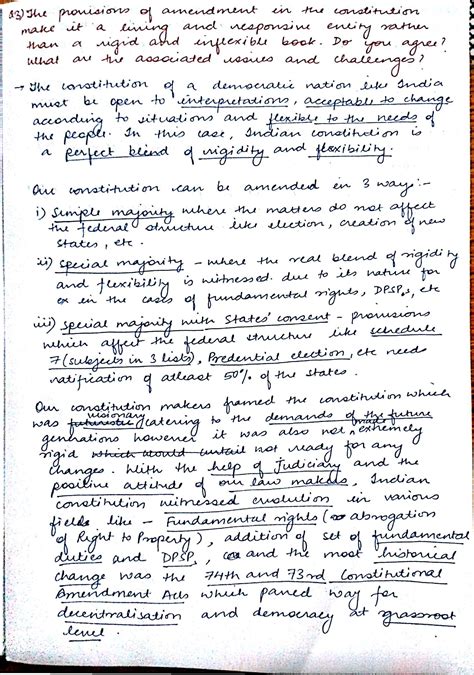 13) The provisions of amendment in the constitution
make it a living and responsive entity rather
than a rigid and inflexible book. Do you agree?
What are the associated issues and challenges?
→ The constitution of a democratic nation like India
must be open to interpretations, acceptable to change
according to situations and flexible to the needs of
the people. In this case, Indian constitution is
a perfect blend of rigidity and flexibility.
Our constitution can be amended in 3 ways:-
i) Simple majority where the matters do not affect
the federal structure like election, creation of new
states, etc.
ii) Special majority - where the real blend of rigidity
and flexibility is witnessed due to its nature for
ex in the cases of fundamental rights, DPSPs, etc
iii) Special majority with States' consent - provisions
which affect the federal structure like schedule
7 (subjects in 3 lists), Predential election, etc needs
ratification of atleast 50% of the states.
Our constitution makers framed the constitution which
was futuristic visionary catering to the demands of the future
generations however it was also not made extremely
rigid which would entail not ready for any
changes. With the help of Judiciary and the
positive attitude of our law makers, Indian
constitution witnessed evolution in various
fields like - Fundamental rights (abrogation
of Right to Property), addition of set of fundamental
duties and DPSP, and the most historical
change was the 74th and 73rd Constitutional
Amendment Acts which paved way for
decentralisation and democracy at grassroot
level.